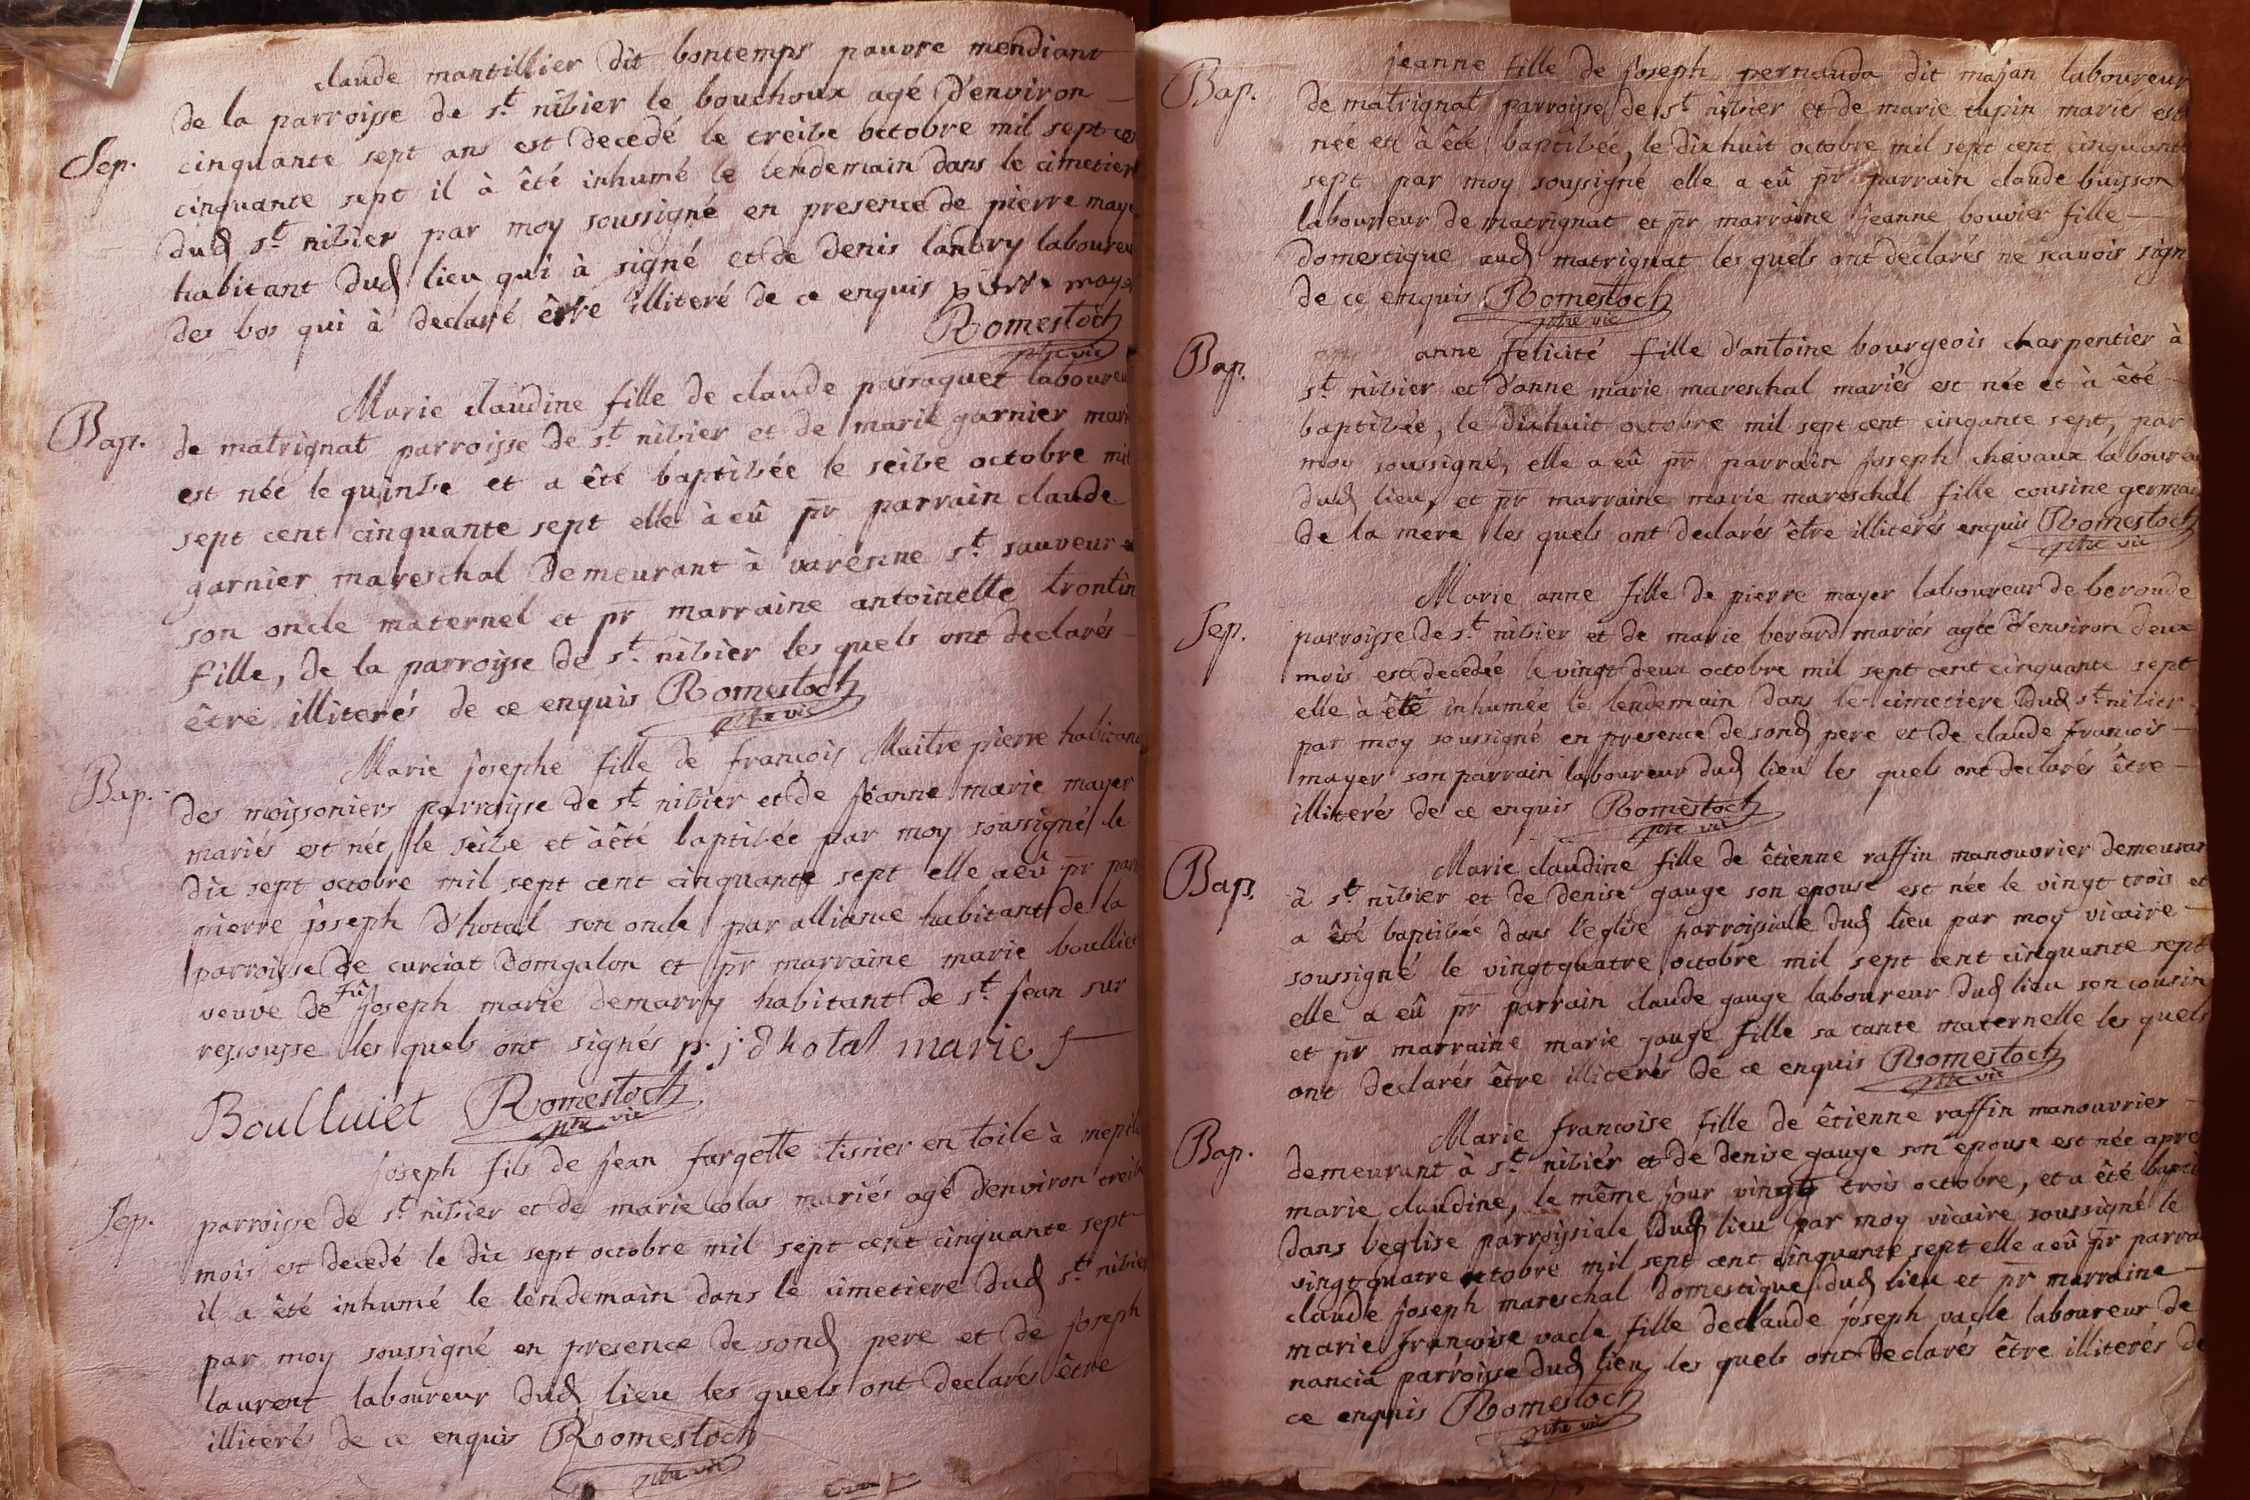 claude mantillier dit bontemps pauvre mendiant
de la parroisse de st nibier le bouchoux agé d'environ
Sep. cinquante sept ans est decedé le treize octobre mil sept
cinquante sept il à été inhumé le lendemain dans le cimetier
dud st nibier par moy soussigné en presence de pierre
habitant dud lieu qui à signé et de denis landry
des bos qui à declaré être illiteré de ce enquis
Romestoch
ptre vic
Marie claudine fille de claude passaquet
Bap. de matrignat parroisse de st nibier et de marie garnier
est née le quinze et a été baptizée le seize octobre mil
sept cent cinquante sept elle à eû pr parrain claude
garnier mareschal demeurant à varenne st sauveur
son oncle maternel et pr marraine antoinette trontin
fille, de la parroisse de st nibier les quels ont declarés
être illiterés de ce enquis Romestoch
ptre vic
Marie josephe fille de françois Maitre pierre
Bap. des moissoniers parroisse de st nibier et de jeanne marie mayer
mariés est née le seize et à été baptizée par moy soussigné le
dix sept octobre mil sept cent cinquante sept elle a eû pr
pierre joseph d'hotal son oncle par alliance habitant de la
parroisse de curciat domgalon et pr marraine marie
veuve de fû joseph marie demarry habitant de st jean sur
ressousse les quels ont signés p. j. d hotal marie
Boulluiet Romestoch
ptre vic
joseph fils de jean fargette tissier en toile à
Sep. parroisse de st nibier et de marie colas mariés agé d'environ
mois est decedé le dix sept octobre mil sept cent cinquante sept
il a été inhumé le lendemain dans le cimetiere dud st
par moy soussigné en presence de sond pere et de joseph
laurent laboureur dud lieu les quels ont declarés être
illiterés de ce enquis Romestoch
ptre vic
jeanne fille de joseph pernauda dit majan laboureur
Bap. de matrignat parroisse de st nibier et de marie tupin mariés est
née et à été baptizée, le dixhuit octobre mil sept cent
sept par moy soussigné elle a eû pr parrain claude buisson
laboureur de matrignat et pr marraine jeanne bouvier fille
domestique aud matrignat les quels ont declarés ne scavoir
de ce enquis Romestoch
ptre vic
Bap. anne felicité fille d'antoine bourgeois charpentier à
st nibier et d'anne marie mareschal mariés est née et à été
baptizée, le dixhuit octobre mil sept cent cinqante sept, par
moy soussigné, elle a eû pr parrain joseph chevaux
dud lieu, et pr marraine marie mareschal fille cousine
de la mere les quels ont declarés être illiterés enquis Romestoch
ptre vic
Marie anne fille de pierre mayer laboureur de beroude
Sep. parroisse de st nibier et de marie berard mariés agée d'environ deux
mois est decedée le vingt deux octobre mil sept cent cinquante sept
elle à été inhumée le lendemain dans le cimetiere dud st nibier
par moy soussigné en presence de sond pere et de claude francois
mayer son parrain laboureur dud lieu les quels ont declarés être
illiterés de ce enquis Romestoch
ptre vic
Marie claudine fille de êtienne raffin manouvrier
Bap. à st nibier et de denise gauge son epouse est née le vingt trois et
a été baptizée dans l'eglise parroissiale dud lieu par moy vicaire
soussigné le vingtquatre octobre mil sept cent cinquante sept
elle a eû pr parrain claude gauge laboureur dud lieu son cousin
et pr marraine marie gauge fille sa tante maternelle les quels
ont declarés être illiterés de ce enquis Romestoch
ptre vic
Marie francoise fille de êtienne raffin manouvrier
Bap. demeurant à st nibier et de denise gauge son epouse est née
marie claudine, le même jour vingt trois octobre, et a été
dans l'eglise parroissiale dud lieu par moy vicaire soussigné le
vingt quatre octobre mil sept cent cinquante sept elle a eû pr
claude joseph mareschal domestique dud lieu et pr marraine
marie françoise vacle fille de claude joseph vacle laboureur de
nancia parroisse dud lieu les quels ont declarés être illiterés de
ce enquis Romestoch
ptre vic